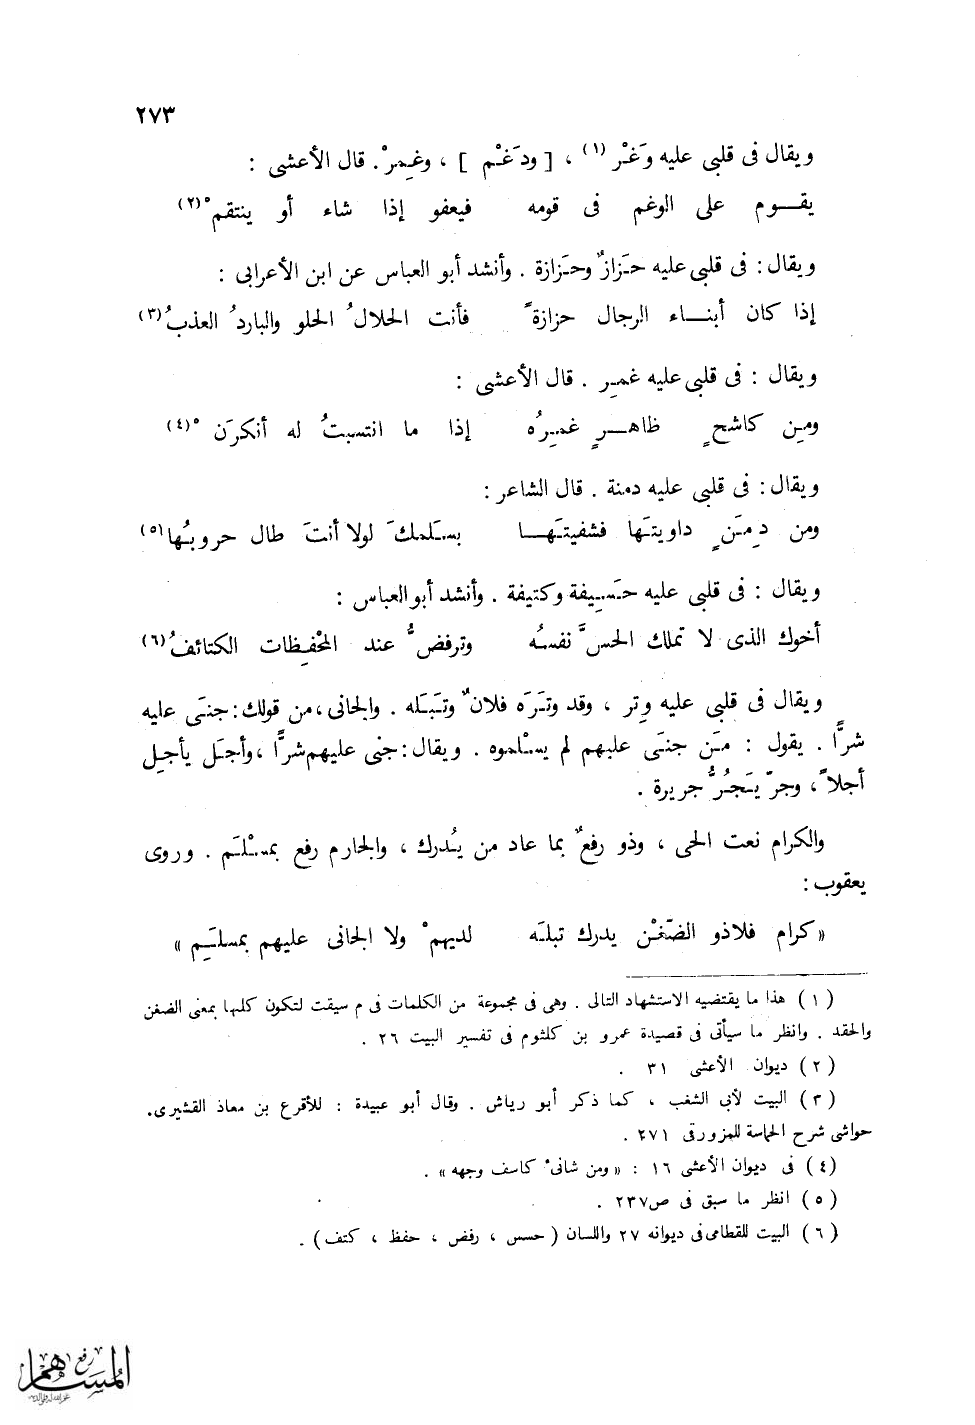 ٢٧٣
ويقال فى قلبى عليه وَغْر (١) ، [ ودَغْم ] ، وغِمرْ. قال الأعشى :
يقـــوم على الوغم فى قومه فيعفو إذا شاء أو ينتقم ْ(٢)
ويقال: فى قلبى عليه حَزازٌ وحَزازة . وأنشد أبو العباس عن ابن الأعرابى :
إذا كان أبنـــاء الرجال حزازةً فأنت الحلالُ الحلو والباردُ العذبُ(٣)
ويقال : فى قلبى عليه غمِر . قال الأعشى :
ومِن كاشحٍ ظاهـــرٍ غمِرُه إذا ما انتسبتُ له أنكرَن ْ(٤)
ويقال: فى قلبى عليه دمنة . قال الشاعر :
ومن دِمَنٍ داويتَها فشفيتَهـــا بسَلمكَ لولا أنتَ طال حروبُها(٥)
ويقال : فى قلبى عليه حَسِيفة وكتيفة . وأنشد أبو العباس :
أخوك الذى لا تملك الحسَّ نفسُه وترفضُّ عند المحْفِظات الكتائفُ(٦)
ويقال فى قلبى عليه وِتر ، وقد وتَرَه فلانٌ وتَبَله . والجانى ،من قولك: جنَى عليه
شرًّا . يقول : مَن جنَى عليهم لم يسْلموه . ويقال: جنى عليهم شرًّا ،وأجَل يأجِل
أجلاً ، وجرّ يَجُرُّ جريرة .
والكرام نعت الحى ، وذو رفعٌ بما عاد من يُدرك ، والجارم رفع بمسْلَم . وروى
يعقوب :
«كرام فلاذو الضّغْن يدرك تبلَه لديهمْ ولا الجانى عليهم بمسلَمِ »
( ١ ) هذا ما يقتضيه الاستشهاد التالى . وهى فى مجموعة من الكلمات فى م سيقت لتكون كلها بمعنى الضغن
والحقد . وانظر ما سيأتى فى قصيدة عمرو بن كلثوم فى تفسير البيت ٢٦ .
( ٢ ) ديوان الأعشى ٣١ .
( ٣ ) البيت لأبى الشغب ، كما ذكر أبو رياش . وقال أبو عبيدة : للأقرع بن معاذ القشيرى.
حواشى شرح الحماسة للمزورقى ٢٧١ .
(٤) فى ديوان الأعشى ١٦ : «ومن شانئ كاسف وجهه» .
( ٥ ) انظر ما سبق فى ص٢٣٧ .
( ٦ ) البيت للقطامى فى ديوانه ٢٧ واللسان ( حسس ، رفض ، حفظ ، كتف ) .
رفع
المساهم